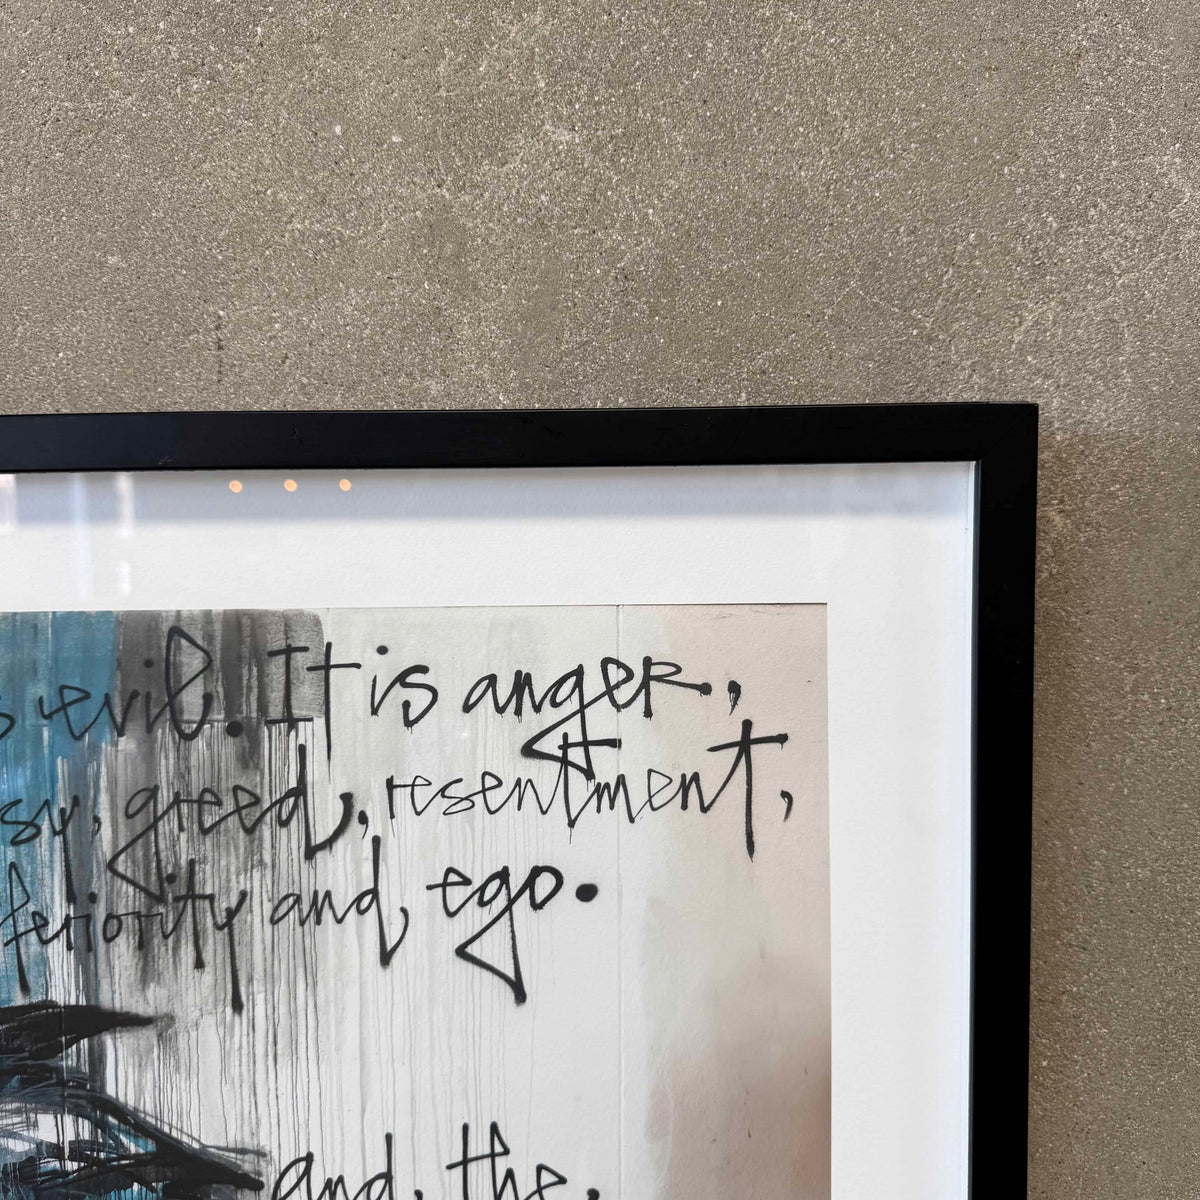 s evil. It is anger,
sy, greed, resentment,
feriority and, ego.
and, the